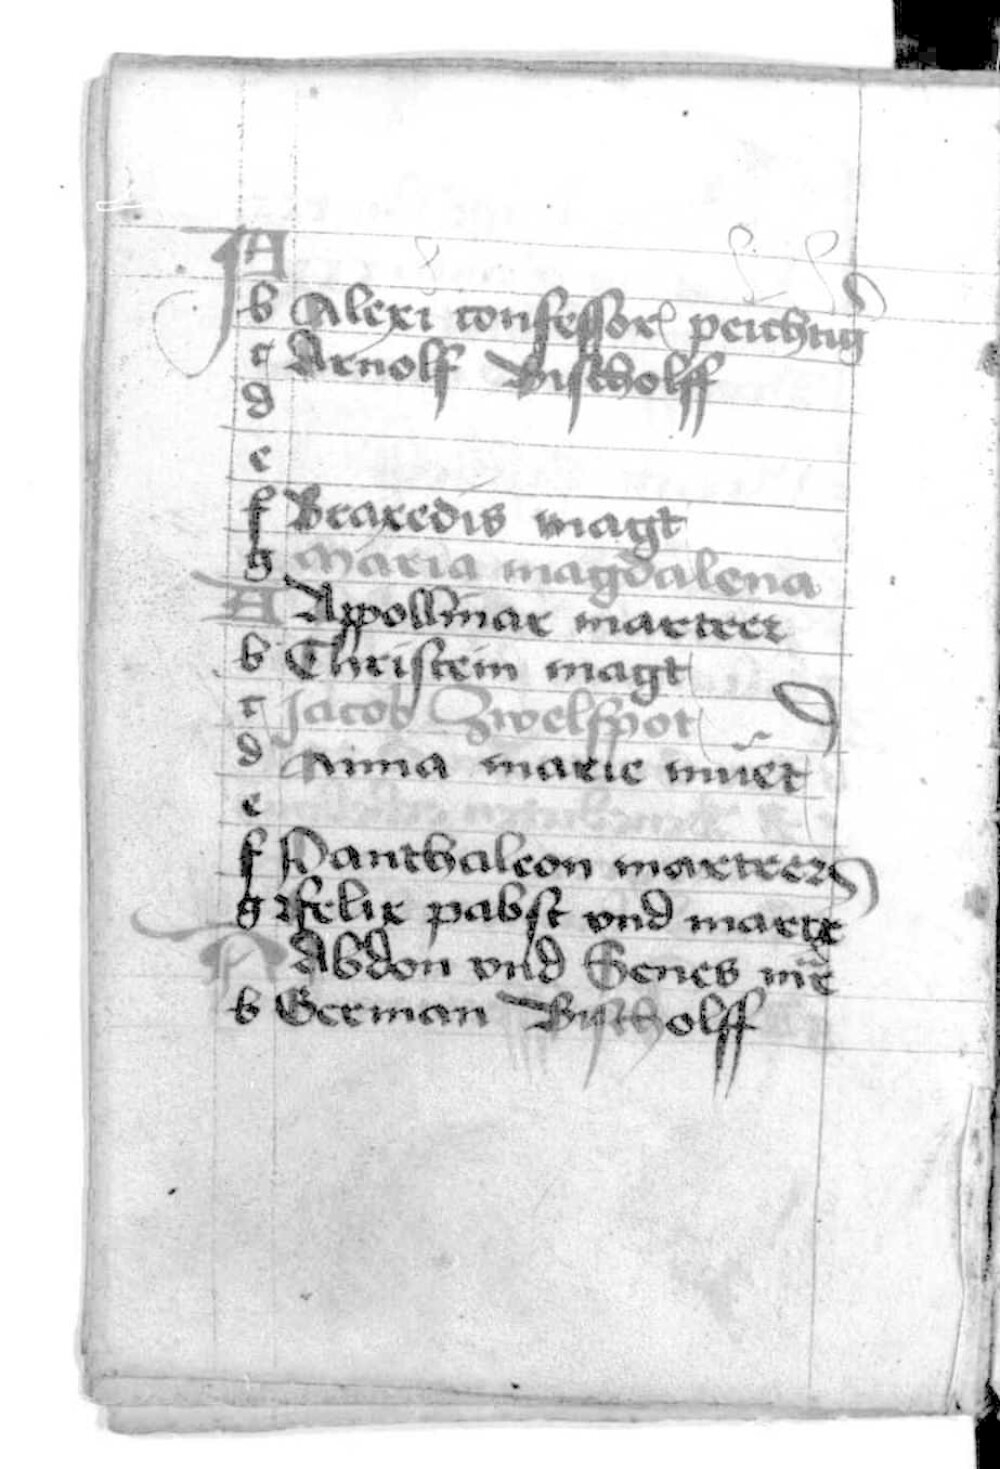 A
b Alexi confessor peichtig
c Arnolf Bischolff
d
e
f Braxedis magt
g Maria magdalena
A Appollinar martrer
b Christein magt
c Jacob Zwelfpot
d Anna marie muet
e
f Panthaleon martrer
g Felix pabst vnd martr
A Abdon vnd Senes mr
b German Bischolff